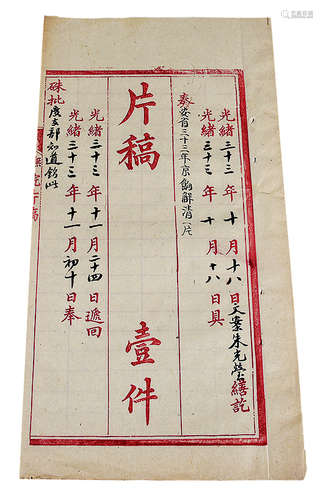 光緒三十三年十月十八日文案朱光瑩繕訖
光緒三十三年十月十八日具
奏安省三十三年京餉解清一片
片稿 壹件
光緒三十三年十一月二十四日遞回
光緒三十三年十一月初十日奉
硃批度支部知道欽此